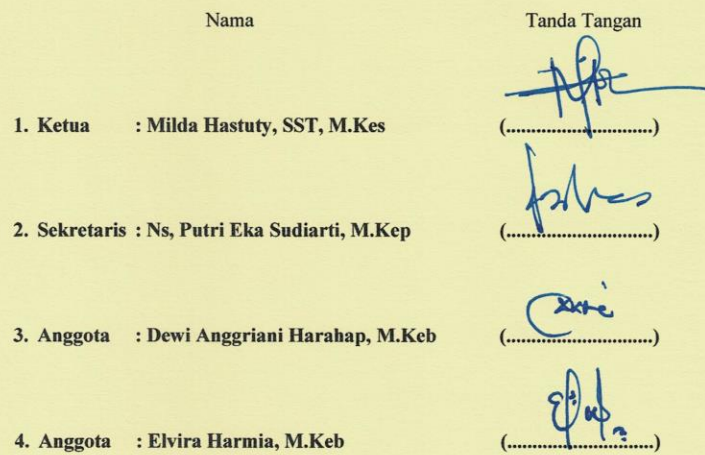 Nama Tanda Tangan
1. Ketua : Milda Hastuty, SST, M.Kes (............................)
2. Sekretaris : Ns, Putri Eka Sudiarti, M.Kep (............................)
3. Anggota : Dewi Anggriani Harahap, M.Keb (............................)
4. Anggota : Elvira Harmia, M.Keb (............................)